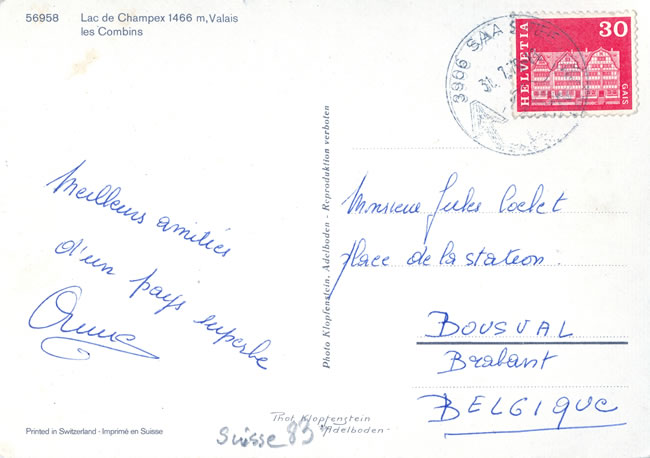 56958 Lac de Champex 1466 m, Valais
les Combins
3906 SAAS
31. 7.
HELVETIA
30
GAIS
Meilleurs amitiés
d'un pays superbe
Photo Klopfenstein, Adelboden - Reproduktion verboten
Monsieur Jules Coclet
Place de la station.
BOUSVAL
Brabant
BELGIQUE
Phot. Klopfenstein
"Adelboden"
Printed in Switzerland - Imprimé en Suisse
Suisse 83